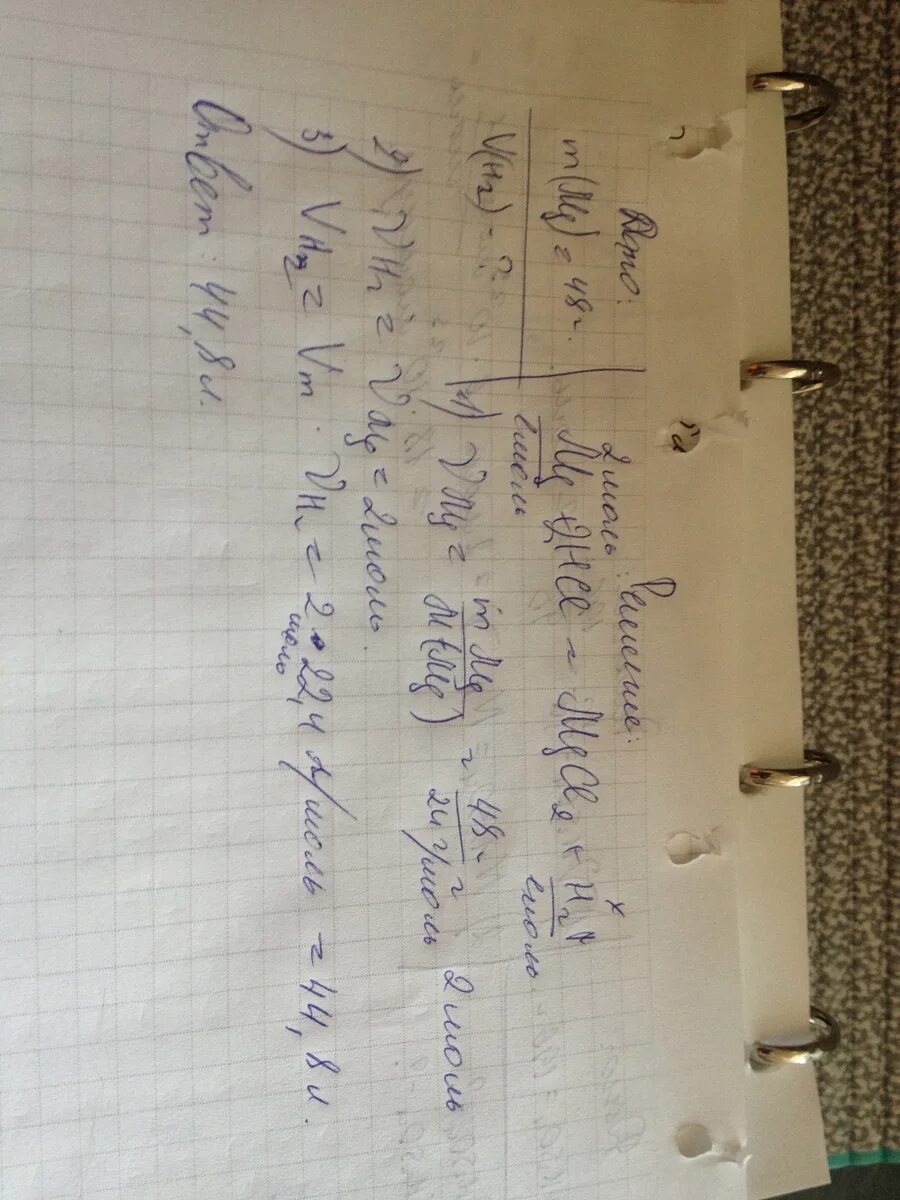 Дано:
m(Mg) = 48 г.
V(H₂) - ?
Решение:
2 моль x
Mg + 2HCl = MgCl₂ + H₂↑
1 моль 1 моль
1) νMg = mMg / M(Mg) = 48 г / 24 г/моль = 2 моль
2) νH₂ = νMg = 2 моль.
3) VH₂ = Vm · νH₂ = 2 моль · 22,4 л/моль = 44,8 л.
Ответ: 44,8 л.